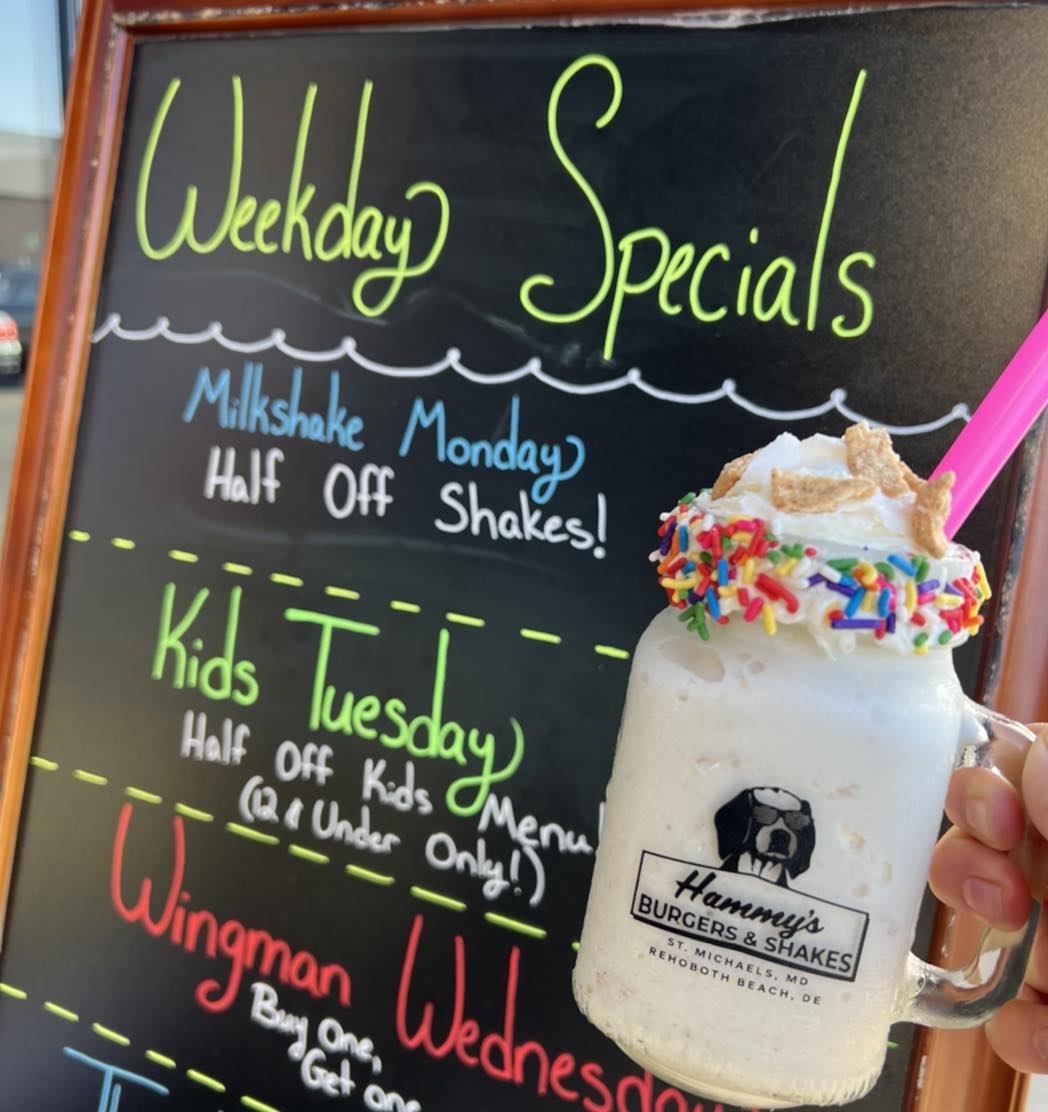 Weekday Specials
Milkshake Monday
Half Off Shakes!
Kids Tuesday
Half Off Kids Menu!
(12 & Under Only!)
Wingman Wednesday
Buy One,
Get one
Hammy's
BURGERS & SHAKES
ST. MICHAELS, MD
REHOBOTH BEACH, DE